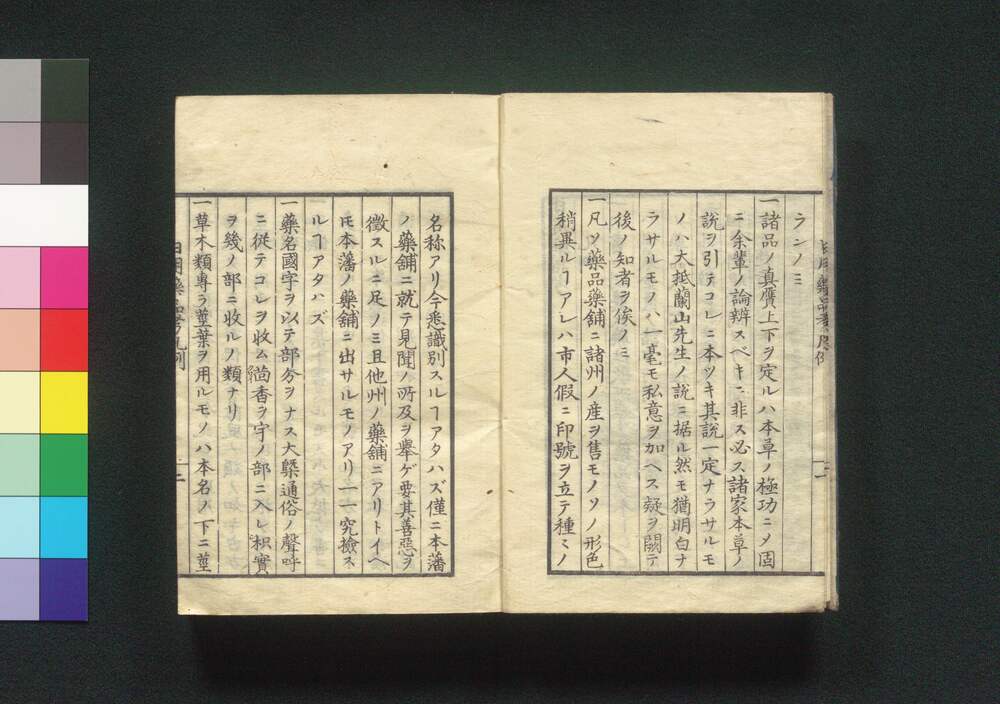 ランノミ
一諸品ノ真贋上下ヲ定ルハ本草ノ極功ニメ固
ニ余輩ノ論辨スベキニ非ス必ス諸家本草ノ
説ヲ引テコレニ本ツキ其説一定ナラサルモ
ノハ大抵蘭山先生ノ説ニ据ル然モ猶明白ナ
ラサルモノハ一毫モ私意ヲ加ヘス疑ヲ闕テ
後ノ知者ヲ俟ノミ
一凡ソ藥品藥舗ニ諸州ノ産ヲ售モノソノ形色
稍異ルヿアレハ市人假ニ印號ヲ立テ種〻ノ
名称アリ今悉識別スルヿアタハズ僅ニ本藩
ノ藥舗ニ就テ見聞ノ所及ヲ擧ゲ要其善惡ヲ
徴スルニ足ノミ且他州ノ藥舗ニアリトイヘ
𪜈本藩ノ藥舗ニ出サルモノアリ一一究檢ス
ルヿアタハズ
一藥名國字ヲ以テ部分ヲナス大槩通俗ノ聲呼
ニ從テコレヲ收ム茴香ヲウノ部ニ入レ枳實
ヲ幾ノ部ニ收ルノ類ナリ
一草木類專ラ莖葉ヲ用ルモノハ本名ノ下ニ莖